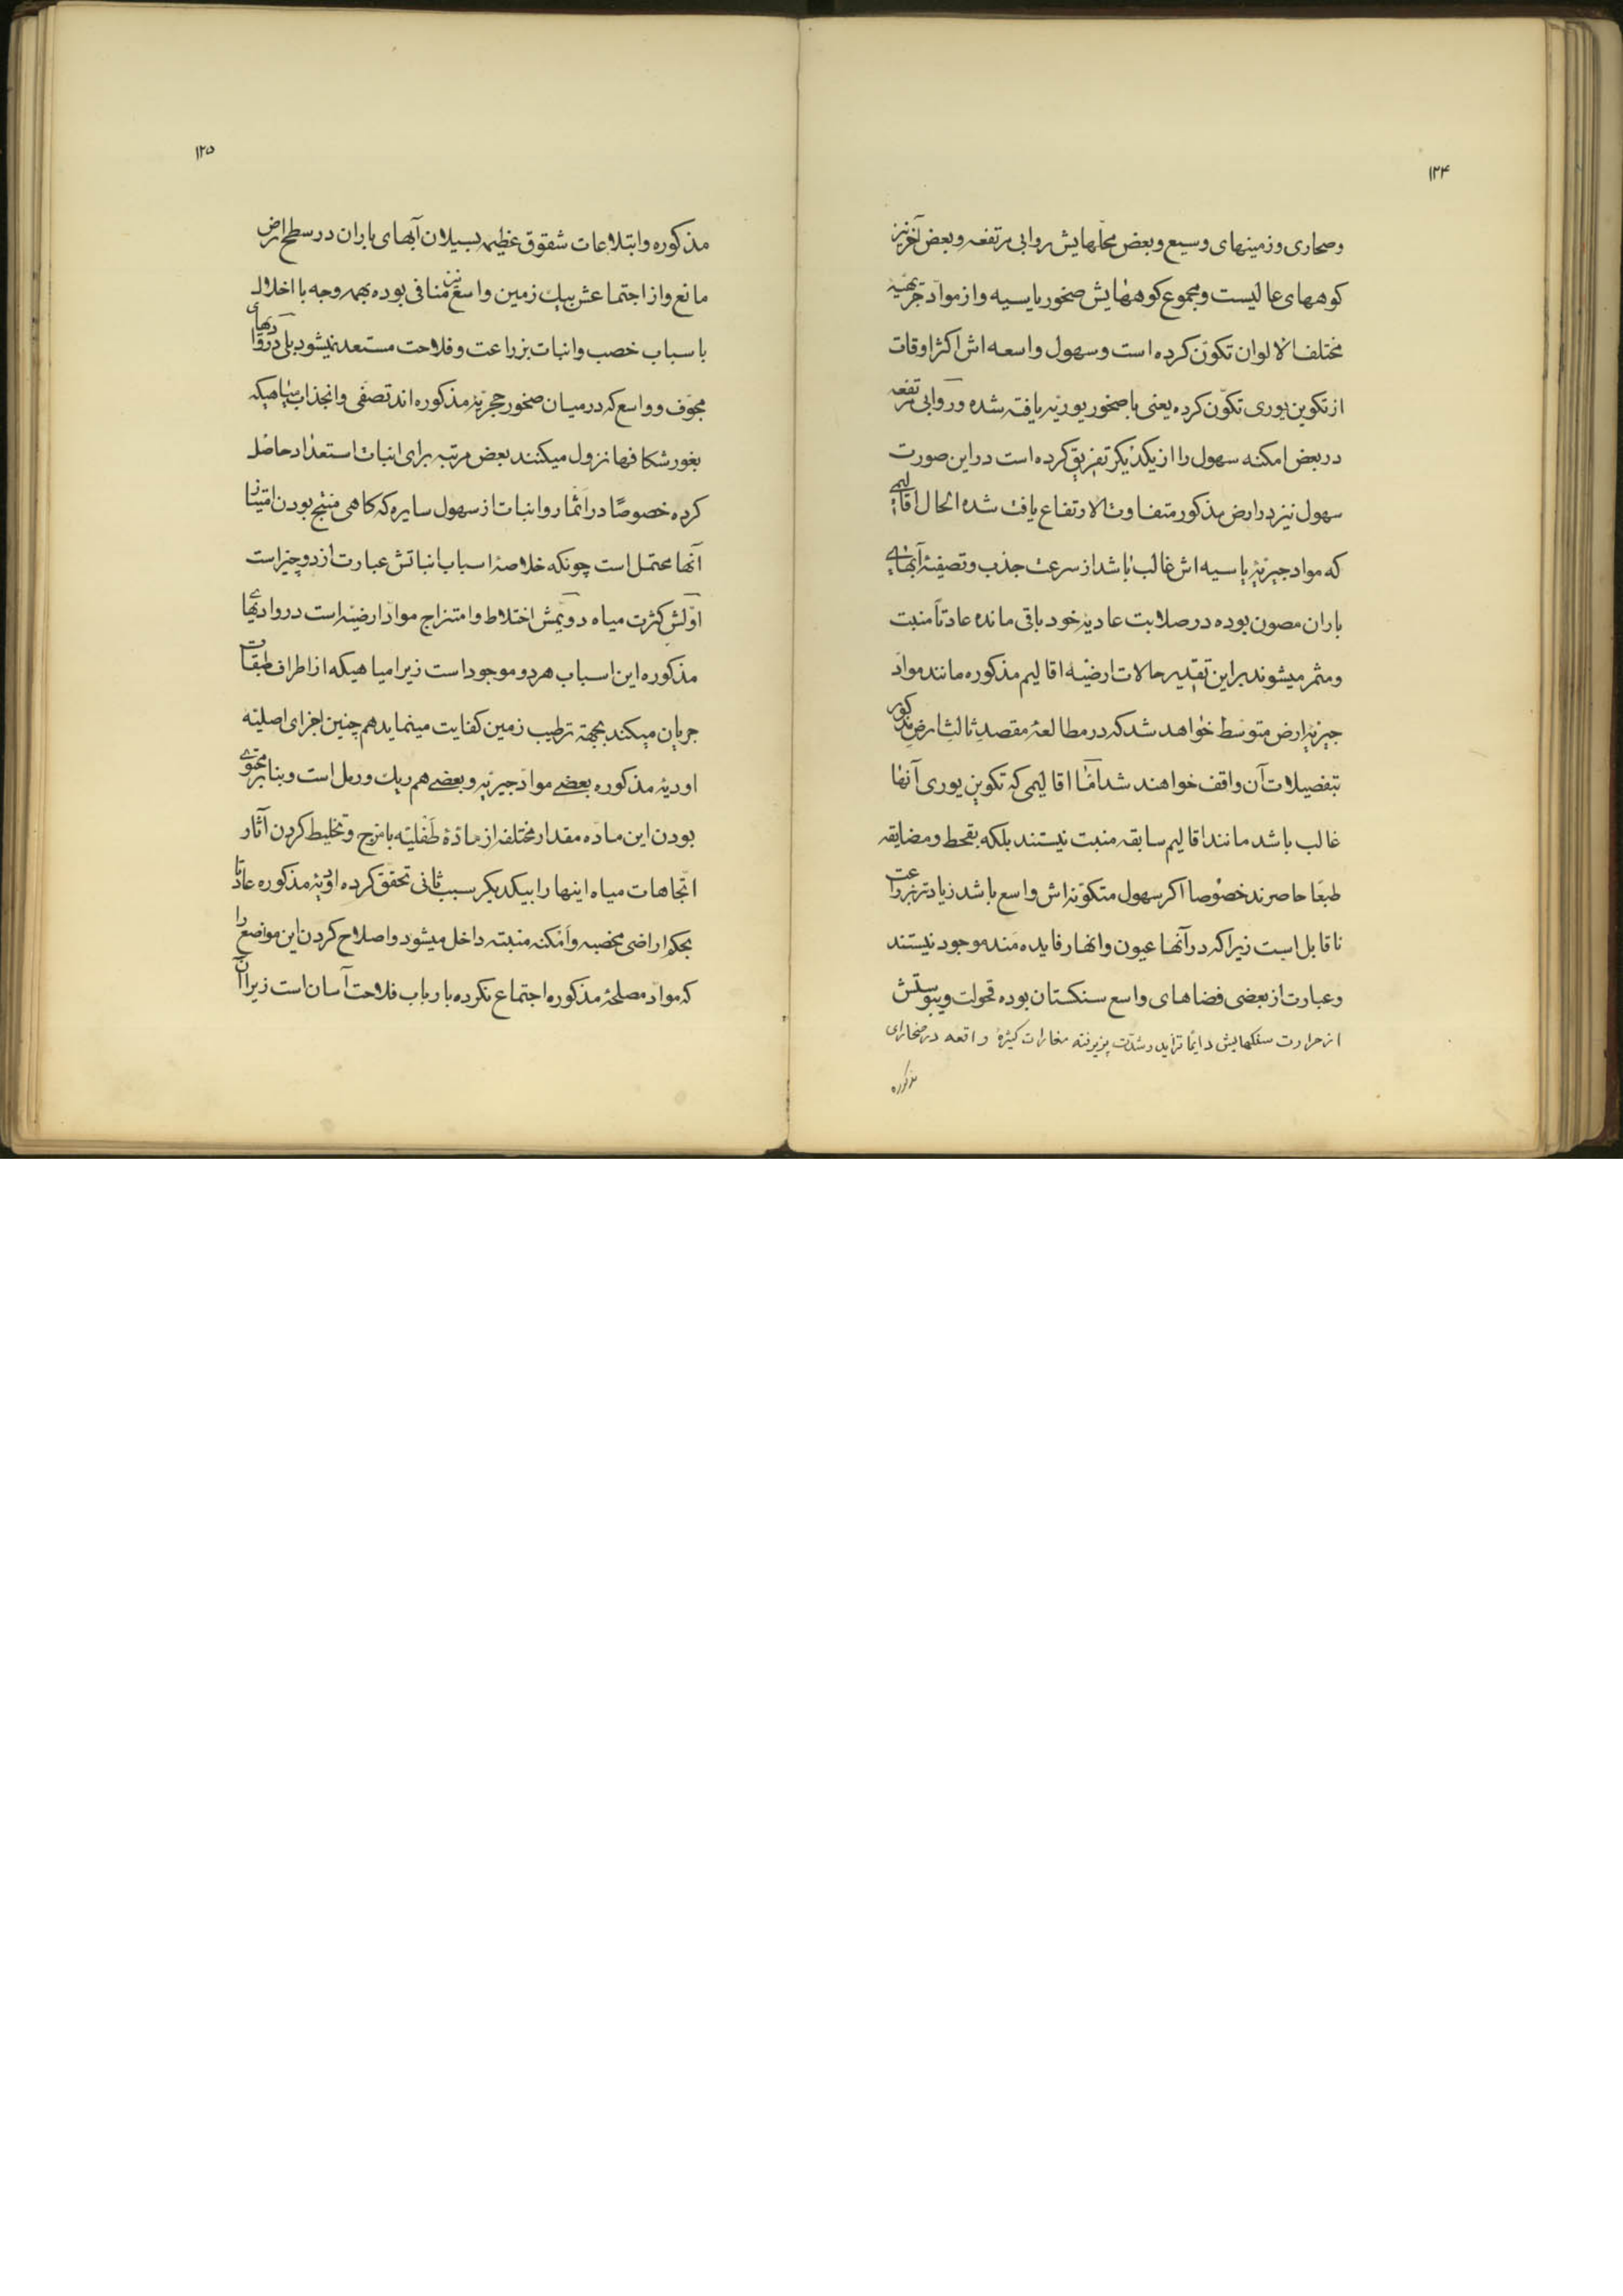 ۱۲۴
وصحاری وزمینهای وسیع وبعض محلهایش روابی مرتفعه وبعض آخر نیز
کوههای عالیست ومجموع کوههایش صخور یابسیه واز مواد
مختلف الالوان تکون کرده است وسهول واسعه اش اکثر اوقات
از تکوین یوری تکون کرده یعنی با صخور یوریه یافته شده وروابی مرتفعه
در بعض امکنه سهول را از یکدیکر تفریق کرده است در این صورت
سهول نیز در ارض مذکور متفاوت الارتفاع یافت شده الحال اقالیمی
که مواد جیریه یابسیه اش غالب باشد از سرعت جذب وتصفیهٔ آبهای
باران مصون بوده در صلابت عادیهٔ خود باقی مانده عادتاً منبت
ومثمر میشوند بر این تقدیر حالات ارضیه اقالیم مذکوره مانند مواد
جیریه ارض متوسط خواهد شد که در مطالعهٔ مقصدِ ثالثِ ارضِ مذکور
بتفصیلات آن واقف خواهند شد امّا اقالیمی که تکوین یوری آنها
غالب باشد مانند اقالیم سابقه منبت نیستند بلکه بقحط ومضایقه
طبعًا حاصرند خصوصا اکر سهول متکونه اش واسع باشد زیادتر بزراعت
ناقابل است زیرا که در آنها عیون وانهار فایده مند موجود نیستند
وعبارت از بعضی فضاهای واسع سنکستان بوده قحولت ویبوستش
از حرارت سنکهایش دایمًا تزاید وشدّت پزیرفته مغارات کثیرهٔ واقعه در صحارای
مذکوره
۱۲۵
مذکوره وابتلاعات شقوق عظیمه بسیلان آبهای باران در سطح ارض
مانع واز اجتماعش بیك زمین واسع نیز منافی بوده بهمه وجه با اخلال
باسباب خصب وانبات بزراعت وفلاحت مستعد نمیشود بلی در وادیهای
مجوّف وواسع که در میان صخور حجریهٔ مذکوره اند تصفّی وانجذاب میاهیکه
بغور شکافها نزول میکنند بعض مرتبه برای انبات استعداد حاصل
کرده خصوصًا در اثمار وانبات از سهول سایره که کاهی منتج بودن امتیاز
آنها محتمل است چونکه خلاصهٔ اسباب انباتش عبارت از دو چیز است
اوّلش کثرت میاه دویّمش اختلاط وامتزاج موادّ ارضیه است در وادیهای
مذکوره این اسباب هردو موجود است زیرا میاهیکه از اطراف طبقات
جریان میکند بجهة ترطیب زمین کفایت مینماید هم چنین اجزای اصلیّه
اودیهٔ مذکوره بعضی موادّ جیریه وبعضی هم ریك ورمل است وبنا بر محتوی
بودن این مادّه مقدار مختلفه از مادّهٔ طَفلیّه با مزج وتخلیط کردن آثار
اتّجاهات میاه اینها را بیکدیکر سبب ثانی تحقّق کرده اودیهٔ مذکوره عادتًا
بحکم اراضی مخصبه وامکنه منبته داخل میشود واصلاح کردن این مواضع را
که موادّ مصلحهٔ مذکوره اجتماع نکرده بارباب فلاحت آسان است زیرا آن